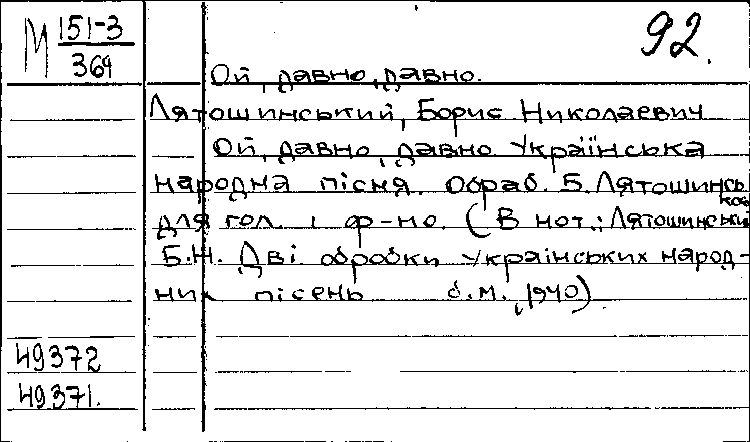 М 151-3
369
92.
Ой, давно, давно.
Лятошинський, Борис Николаевич
Ой, давно, давно Українська
народна пісня. Обраб. Б. Лятошинсь
кого
для гол. і ф-но. (В нот.: Лятошинський
Б.Н. Дві обробки українських народ-
них пісень б.м., 1940)
49372
49371.